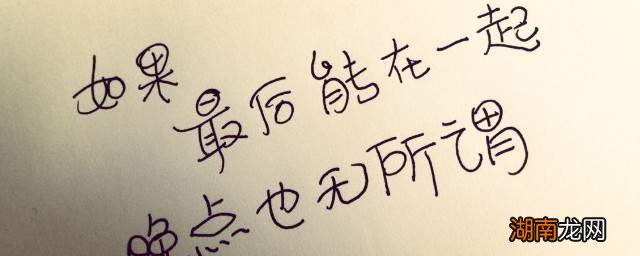 如果
最后能在一起
晚点也无所谓
湖南龙网